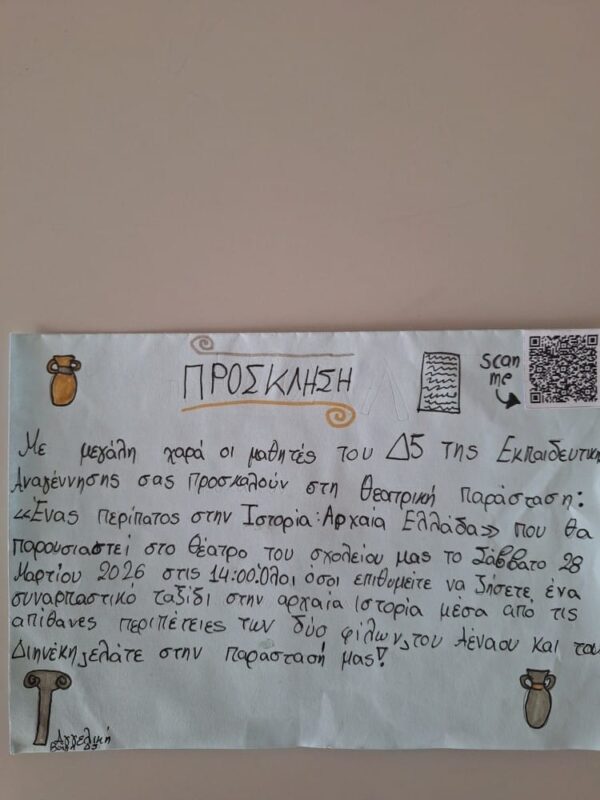 ΠΡΟΣΚΛΗΣΗ
scan
me
Με μεγάλη χαρά οι μαθητές του Δ5 της Εκπαιδευτικη
Αναγέννησης σας προσκαλούν στη θεατρική παράσταση:
«Ένας περίπατος στην Ιστορία: Αρχαία Ελλάδα» που θα
παρουσιαστεί στο θέατρο του σχολείου μας το Σάββατο 28
Μαρτίου 2026 στις 14:00. Όλοι όσοι επιθυμείτε να ζήσετε ένα
συναρπαστικό ταξίδι στην αρχαία Ιστορία μέσα από τις
απίθανες περιπέτειες των δύο φίλων, του Αέναου και του
Διηνέκη, ελάτε στην παράστασή μας!
Αγγελική
Δ5